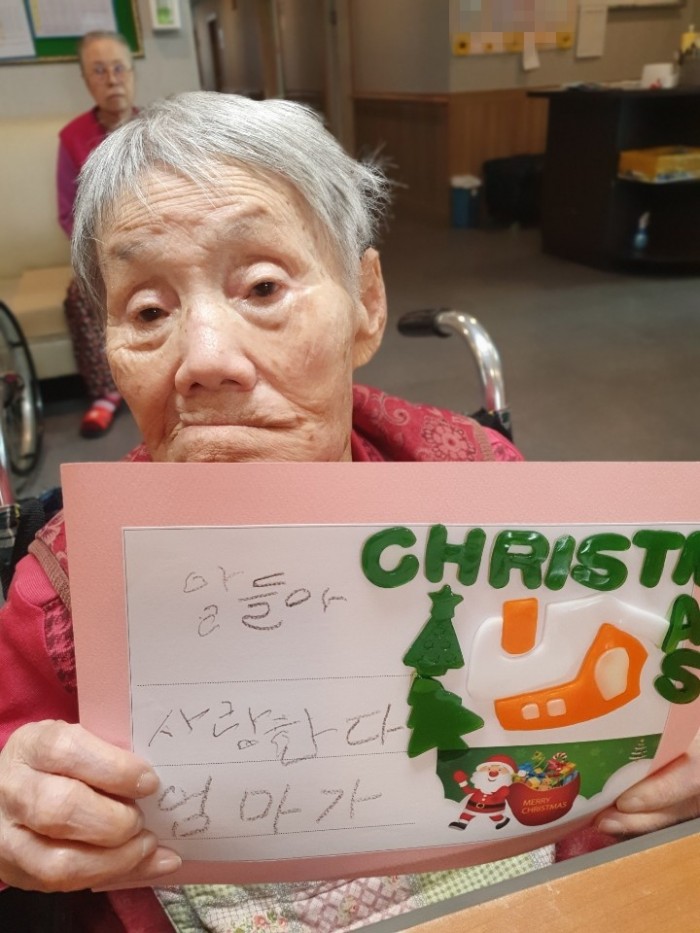 앋들아
사랑한다
엄마가
CHRISTM
AS
MERRY
CHRISTMAS